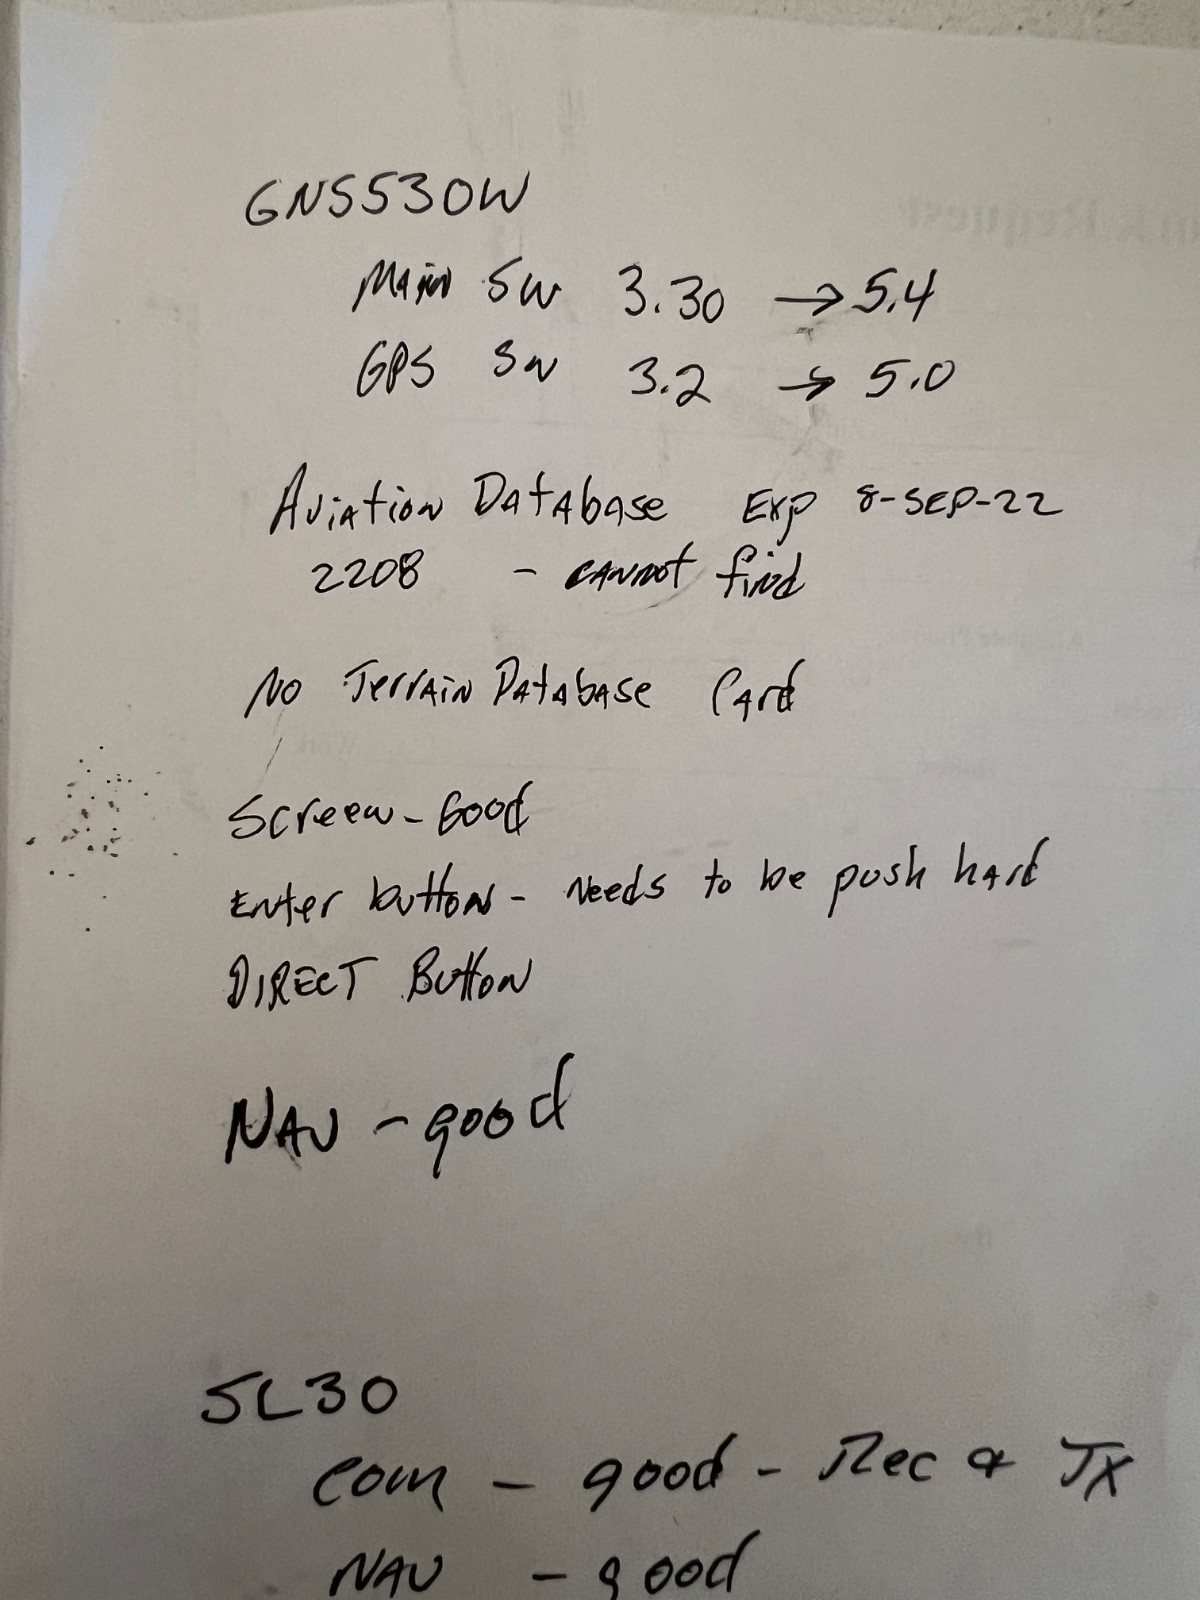 GNS530W
Main SW 3.30 → 5.4
GPS SW 3.2 → 5.0
Aviation Database Exp 8-SEP-22
2208 - cannot find
No Terrain Database Card
Screen - Good
Enter button - Needs to be push hard
DIRECT Button
NAV - good
SL30
com - good - Rec & TX
NAV - good